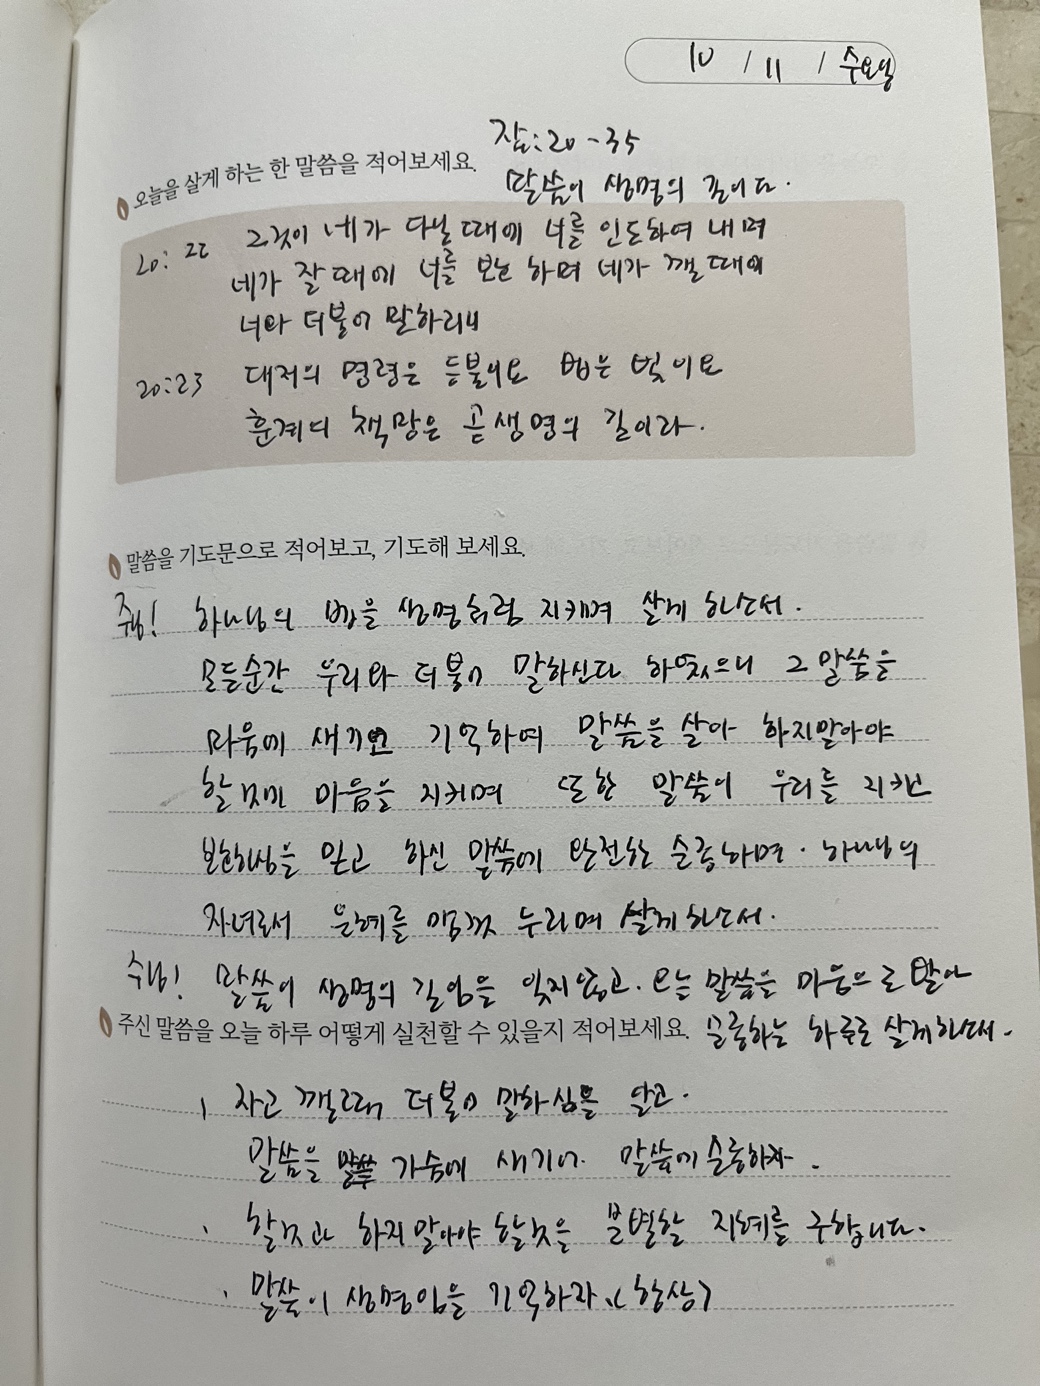 10 / 11 / 수요일
잠:20-35
오늘을 살게 하는 한 말씀을 적어보세요.
말씀이 생명의 길이다.
20:22 그것이 네가 다닐 때에 너를 인도하며 내며
네가 잘때에 너를 보호 하며 네가 깰때에
너와 더불어 말하리니
20:23 대저의 명령은 등불이요 법은 빛이요
훈계의 책망은 곧 생명의 길이라.
말씀을 기도문으로 적어보고, 기도해 보세요.
주님! 하나님의 법을 생명처럼 지키며 살게 하소서.
모든순간 우리와 더불어 말하신다 하였으니 그 말씀을
마음에 새기고 기억하여 말씀을 살아 하지말아야
할 것에 마음을 지키며 또한 말씀이 우리를 지키신
보호하심을 믿고 하신 말씀에 완전한 순종하며. 하나님의
자녀로서 은혜를 맘껏 누리며 살게 하소서.
주님! 말씀이 생명의 길임을 잊지않고. 오늘 말씀을 마음으로 말아
주신 말씀을 오늘 하루 어떻게 실천할 수 있을지 적어보세요. 순종하는 하루로 살게하소서.
자고 깰때 더불어 말하심을 알고.
말씀을 가슴에 새기어. 말씀에 순종하자.
할것과 하지말아야 할것을 분별할 지혜를 구합니다.
말씀이 생명임을 기억하라.(항상)